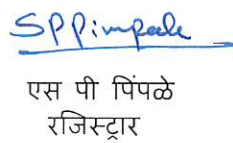 SPPimpale
एस पी पिंपळे
रजिस्ट्रार